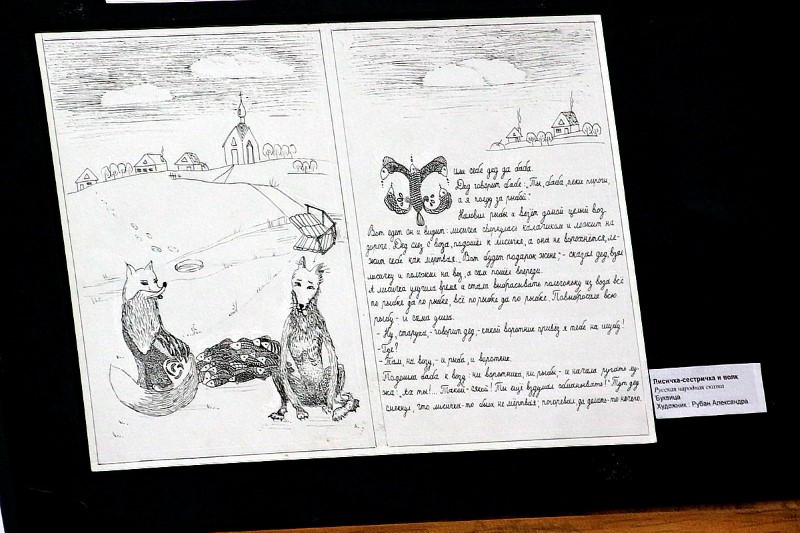 или себе дед да баба.
Дед говорит бабе: „Ты, баба, пеки пироги,
а я поеду за рыбой".
Наловил рыбы и везёт домой целый воз.
Вот едет он и видит: лисичка свернулась калачиком и лежит на
дороге. Дед слез с воза, подошёл к лисичке, а она не ворохнётся, ле-
жит себе как мёртвая. „Вот будет подарок жене", - сказал дед, взял
лисичку и положил на воз, а сам пошёл впереди.
А лисичка улучила время и стала выбрасывать полегоньку из воза всё
по рыбке да по рыбке, всё по рыбке да по рыбке. Повыбросала всю
рыбу - и сама ушла.
- Ну, старуха, - говорит дед, - какой воротник привёз я тебе на шубу!
- Где?
- Там, на возу, - и рыба, и воротник.
Подошла баба к возу: ни воротника, ни рыбы, - и начала ругать му-
жа: „Ах ты!... Такой-сякой! Ты ещё вздумал обманывать!" Тут дед
смекнул, что лисичка-то была не мёртвая; погоревал, да делать-то нечего.
Лисичка-сестричка и волк
Русская народная сказка
Буквица
Художник: Рубан Александра